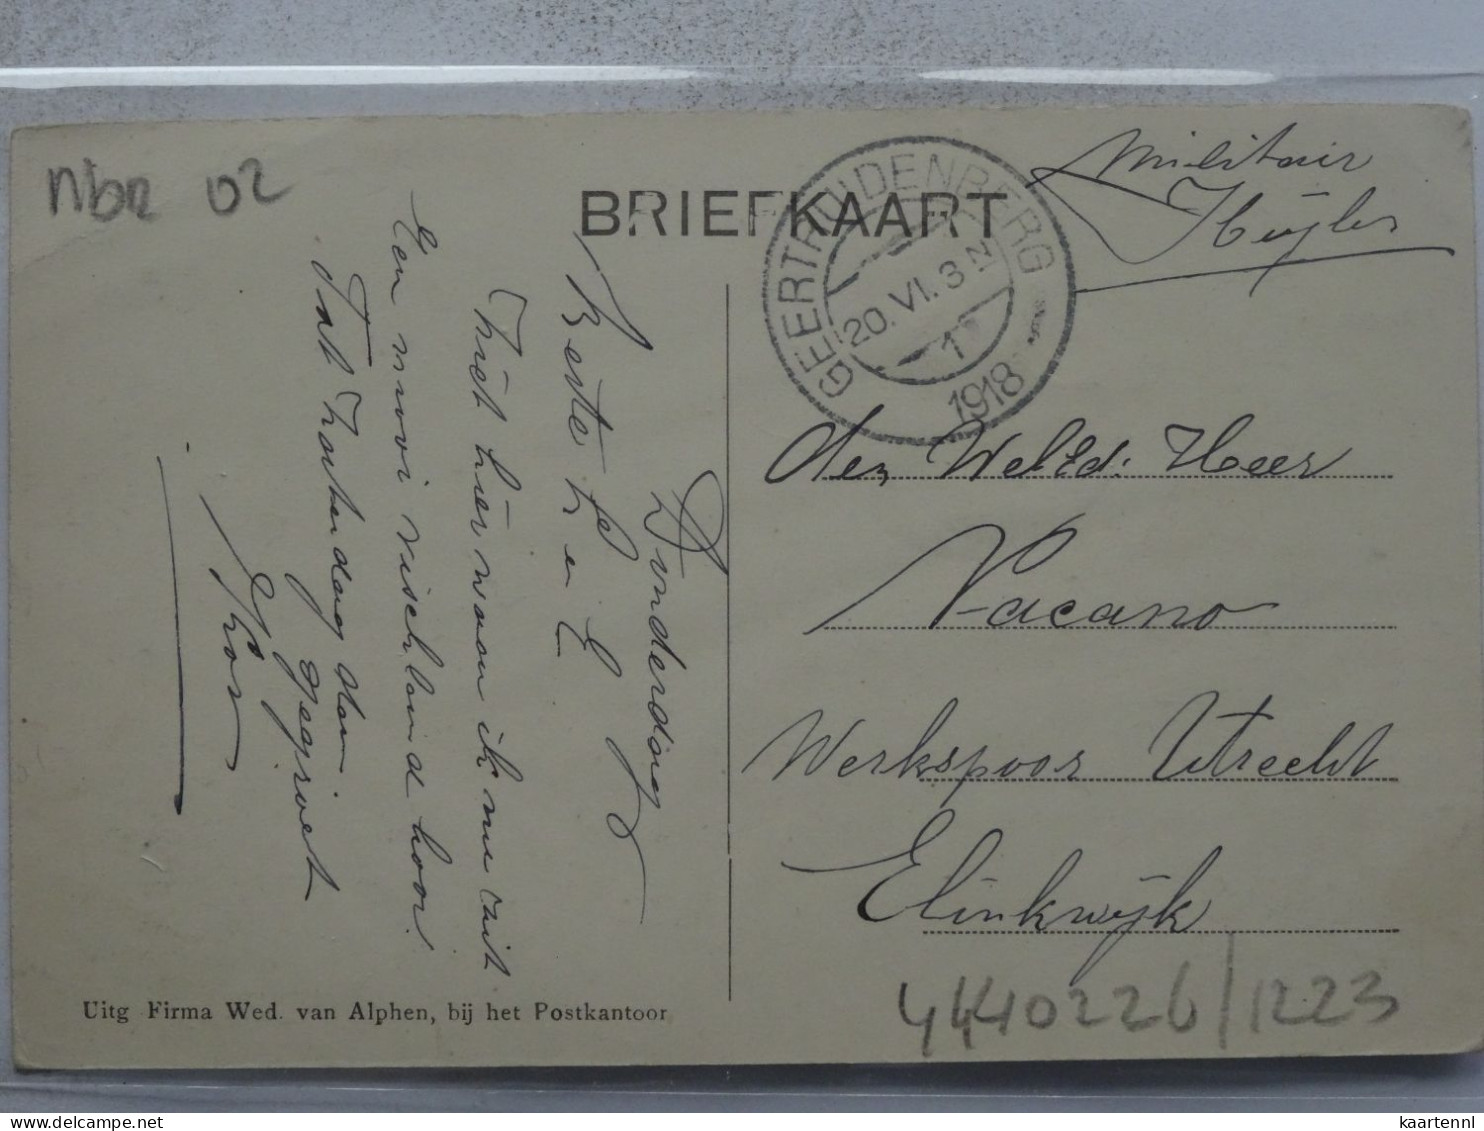 nbr 02
BRIEFKAART
GEERTRUIDENBERG
20. VI. 3 N
1
1918
Militair
Huyler
Donderdag
Beste
Thiet hier woon ik me eait
Een mooi vischland hoor!
Tot Zaterdag dan
gegroet
Kor
den WelEd. Heer
Vacano
Werkspoor Utrecht
Elinkwijk
Uitg Firma Wed. van Alphen, bij het Postkantoor
44440226/1223
delcampe.net
kaartennl